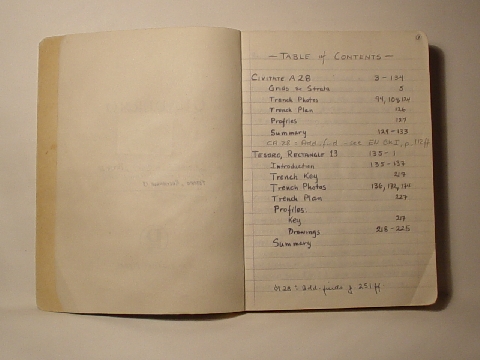 — TABLE of CONTENTS —
CIVITATE A2B 3-134
Grids & Strata 5
Trench Photos 94, 108, 124
Trench Plan 126
Profiles 127
Summary 129-133
TESORO, RECTANGLE 13 135-1
Introduction 135-137
Trench Key 217
Trench Photos 136, 184, 174
Trench Plan 227
Profiles
Key 217
Drawings 218-225
Summary
add. finds 251 ff